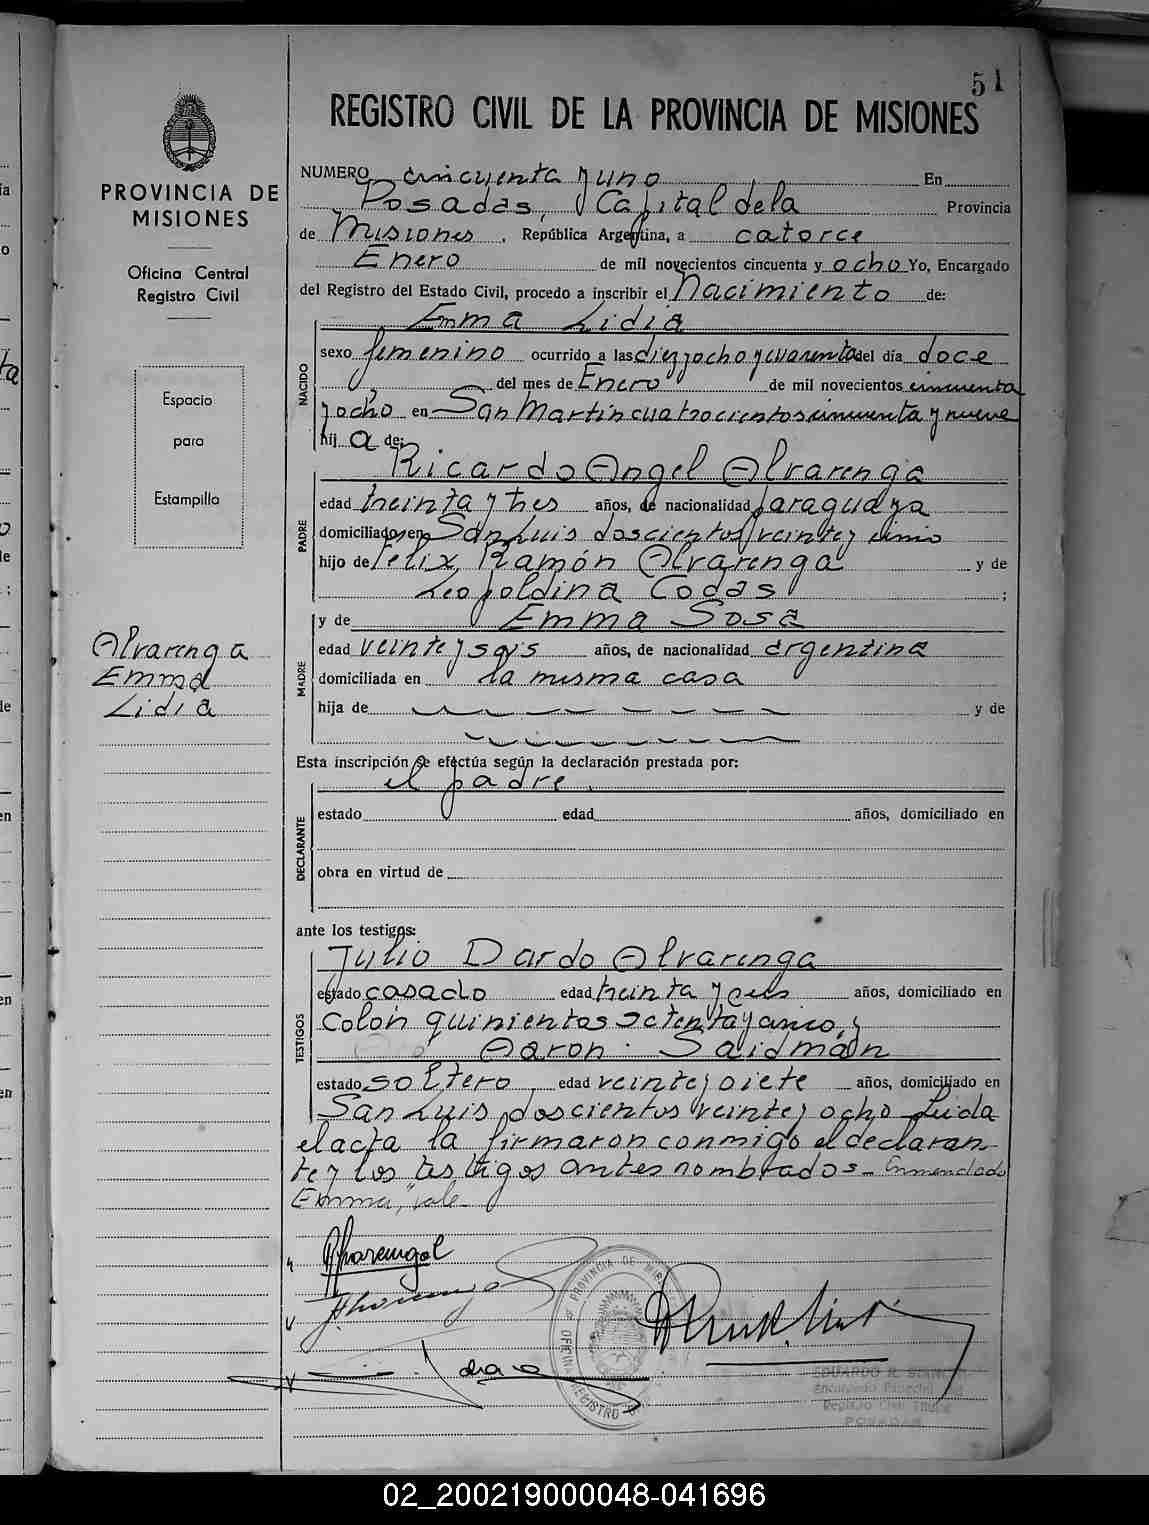 51
REGISTRO CIVIL DE LA PROVINCIA DE MISIONES
PROVINCIA DE
MISIONES
Oficina Central
Registro Civil
Espacio
para
Estampilla
Alvarenga
Emma
Lidia
NUMERO cincuenta y uno En
Posadas, Capital de la Provincia
de Misiones, República Argentina, a catorce
Enero de mil novecientos cincuenta y ocho Yo, Encargado
del Registro del Estado Civil, procedo a inscribir el Nacimiento de:
Emma Lidia
NACIDO
sexo femenino ocurrido a las diez y ocho y cuarenta del día doce
del mes de Enero de mil novecientos cincuenta
y ocho en San Martin cuatrocientos cincuenta y nueve
hij a de:
Ricardo Angel Alvarenga
PADRE
edad treinta y tres años, de nacionalidad paraguaya
domiciliado en San Luis doscientos veinte y
hijo de Felix Ramón Alvarenga y de
Leopoldina Codas ;
MADRE
y de Emma Sosa
edad veinte y seis años, de nacionalidad argentina
domiciliada en la misma casa
hija de y de
Esta inscripción se efectúa según la declaración prestada por:
el padre.
DECLARANTE
estado edad años, domiciliado en
obra en virtud de
ante los testigos:
Julio Dardo Alvarenga
TESTIGOS
estado casado edad treinta y años, domiciliado en
Colón quinientos setenta y cinco, y
Aaron Saidman
estado soltero, edad veinte y siete años, domiciliado en
San Luis doscientos veinte y ocho Leida
el acta la firmaron conmigo el declaran-
te y los testigos antes nombrados - Enmendado
"Emma", vale
PROVINCIA DE MISIONES
OFICINA REGISTRO
EDUARDO R.
Registro Civil
POSADAS
02_200219000048-041696